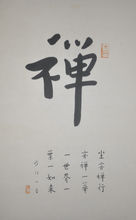 禅
坐亦禅行
亦禅一華
一世界一
葉一如来